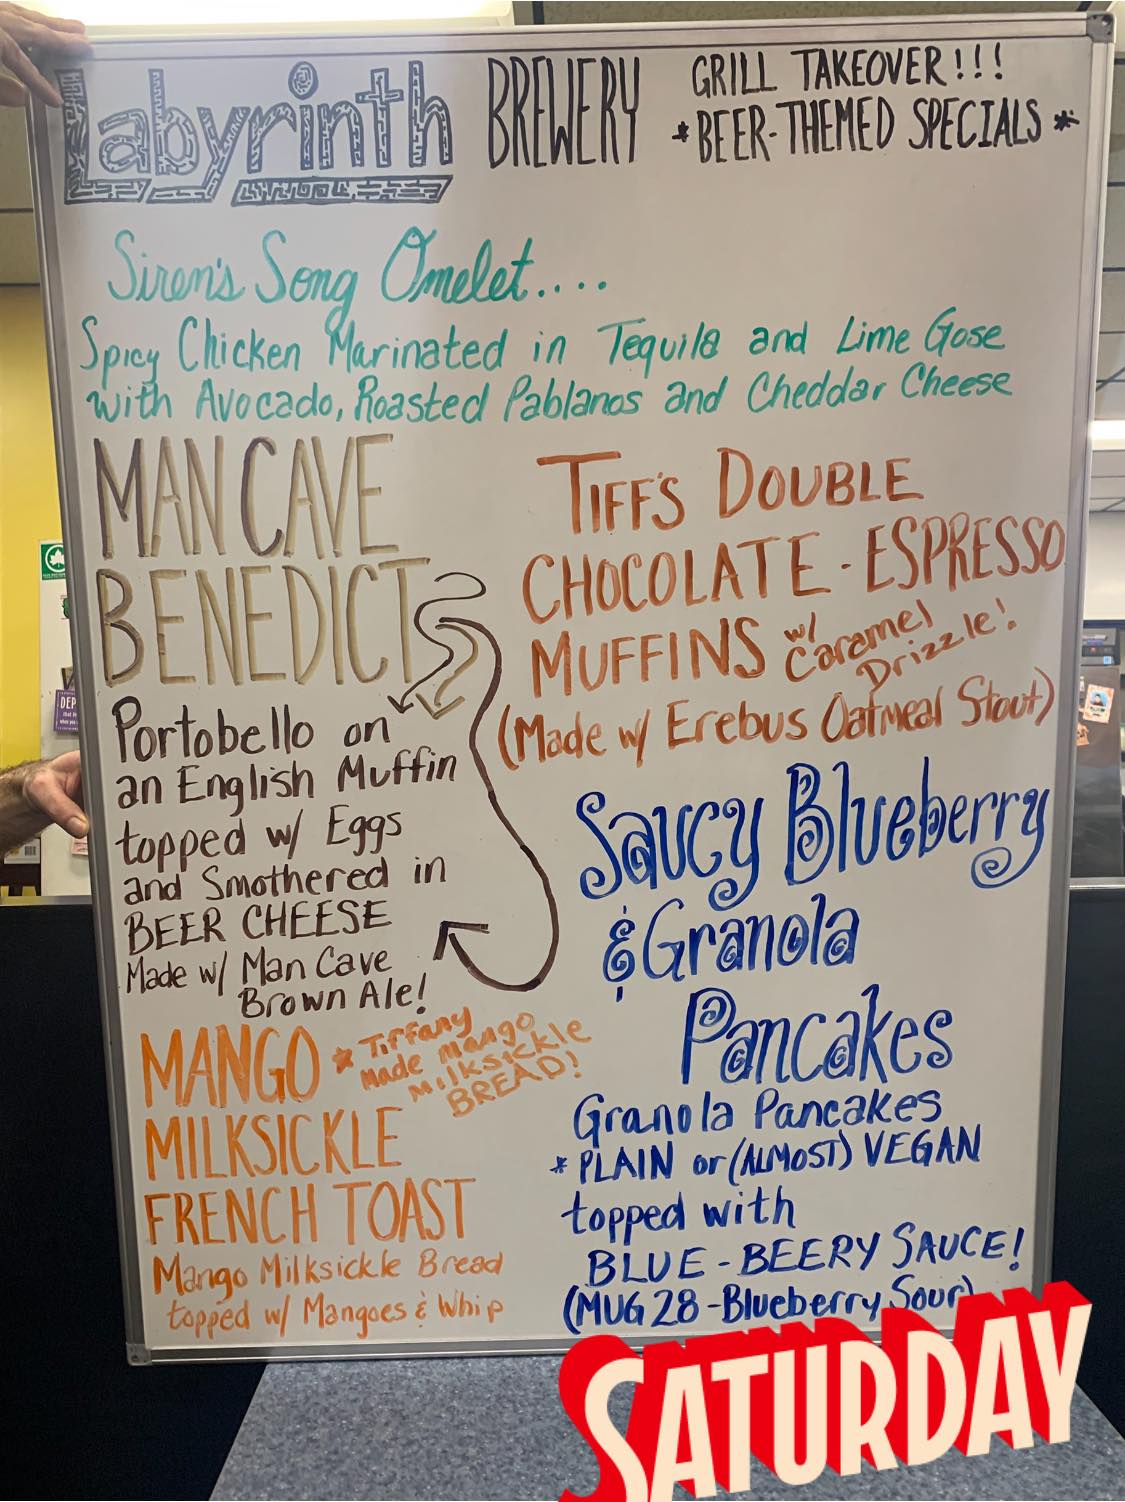 Labyrinth BREWERY
GRILL TAKEOVER!!!
*BEER-THEMED SPECIALS*
Siren's Song Omelet....
Spicy Chicken Marinated in Tequila and Lime Gose
with Avocado, Roasted Pablanos and Cheddar Cheese
MAN CAVE
BENEDICT
Portobello on
an English Muffin
topped w/ Eggs
and Smothered in
BEER CHEESE
Made w/ Man Cave
Brown Ale!
TIFF'S DOUBLE
CHOCOLATE-ESPRESSO
MUFFINS w/
Caramel
Drizzle!
(Made w/ Erebus Oatmeal Stout)
Saucy Blueberry
& Granola
Pancakes
Granola Pancakes
* PLAIN or (ALMOST) VEGAN
topped with
BLUE-BEERY SAUCE!
(MUG 28 - Blueberry Sour)
MANGO
MILKSICKLE
FRENCH TOAST
* Tiffany
made mango
milksickle
BREAD!
Mango Milksickle Bread
topped w/ Mangoes & Whip
SATURDAY
DEP